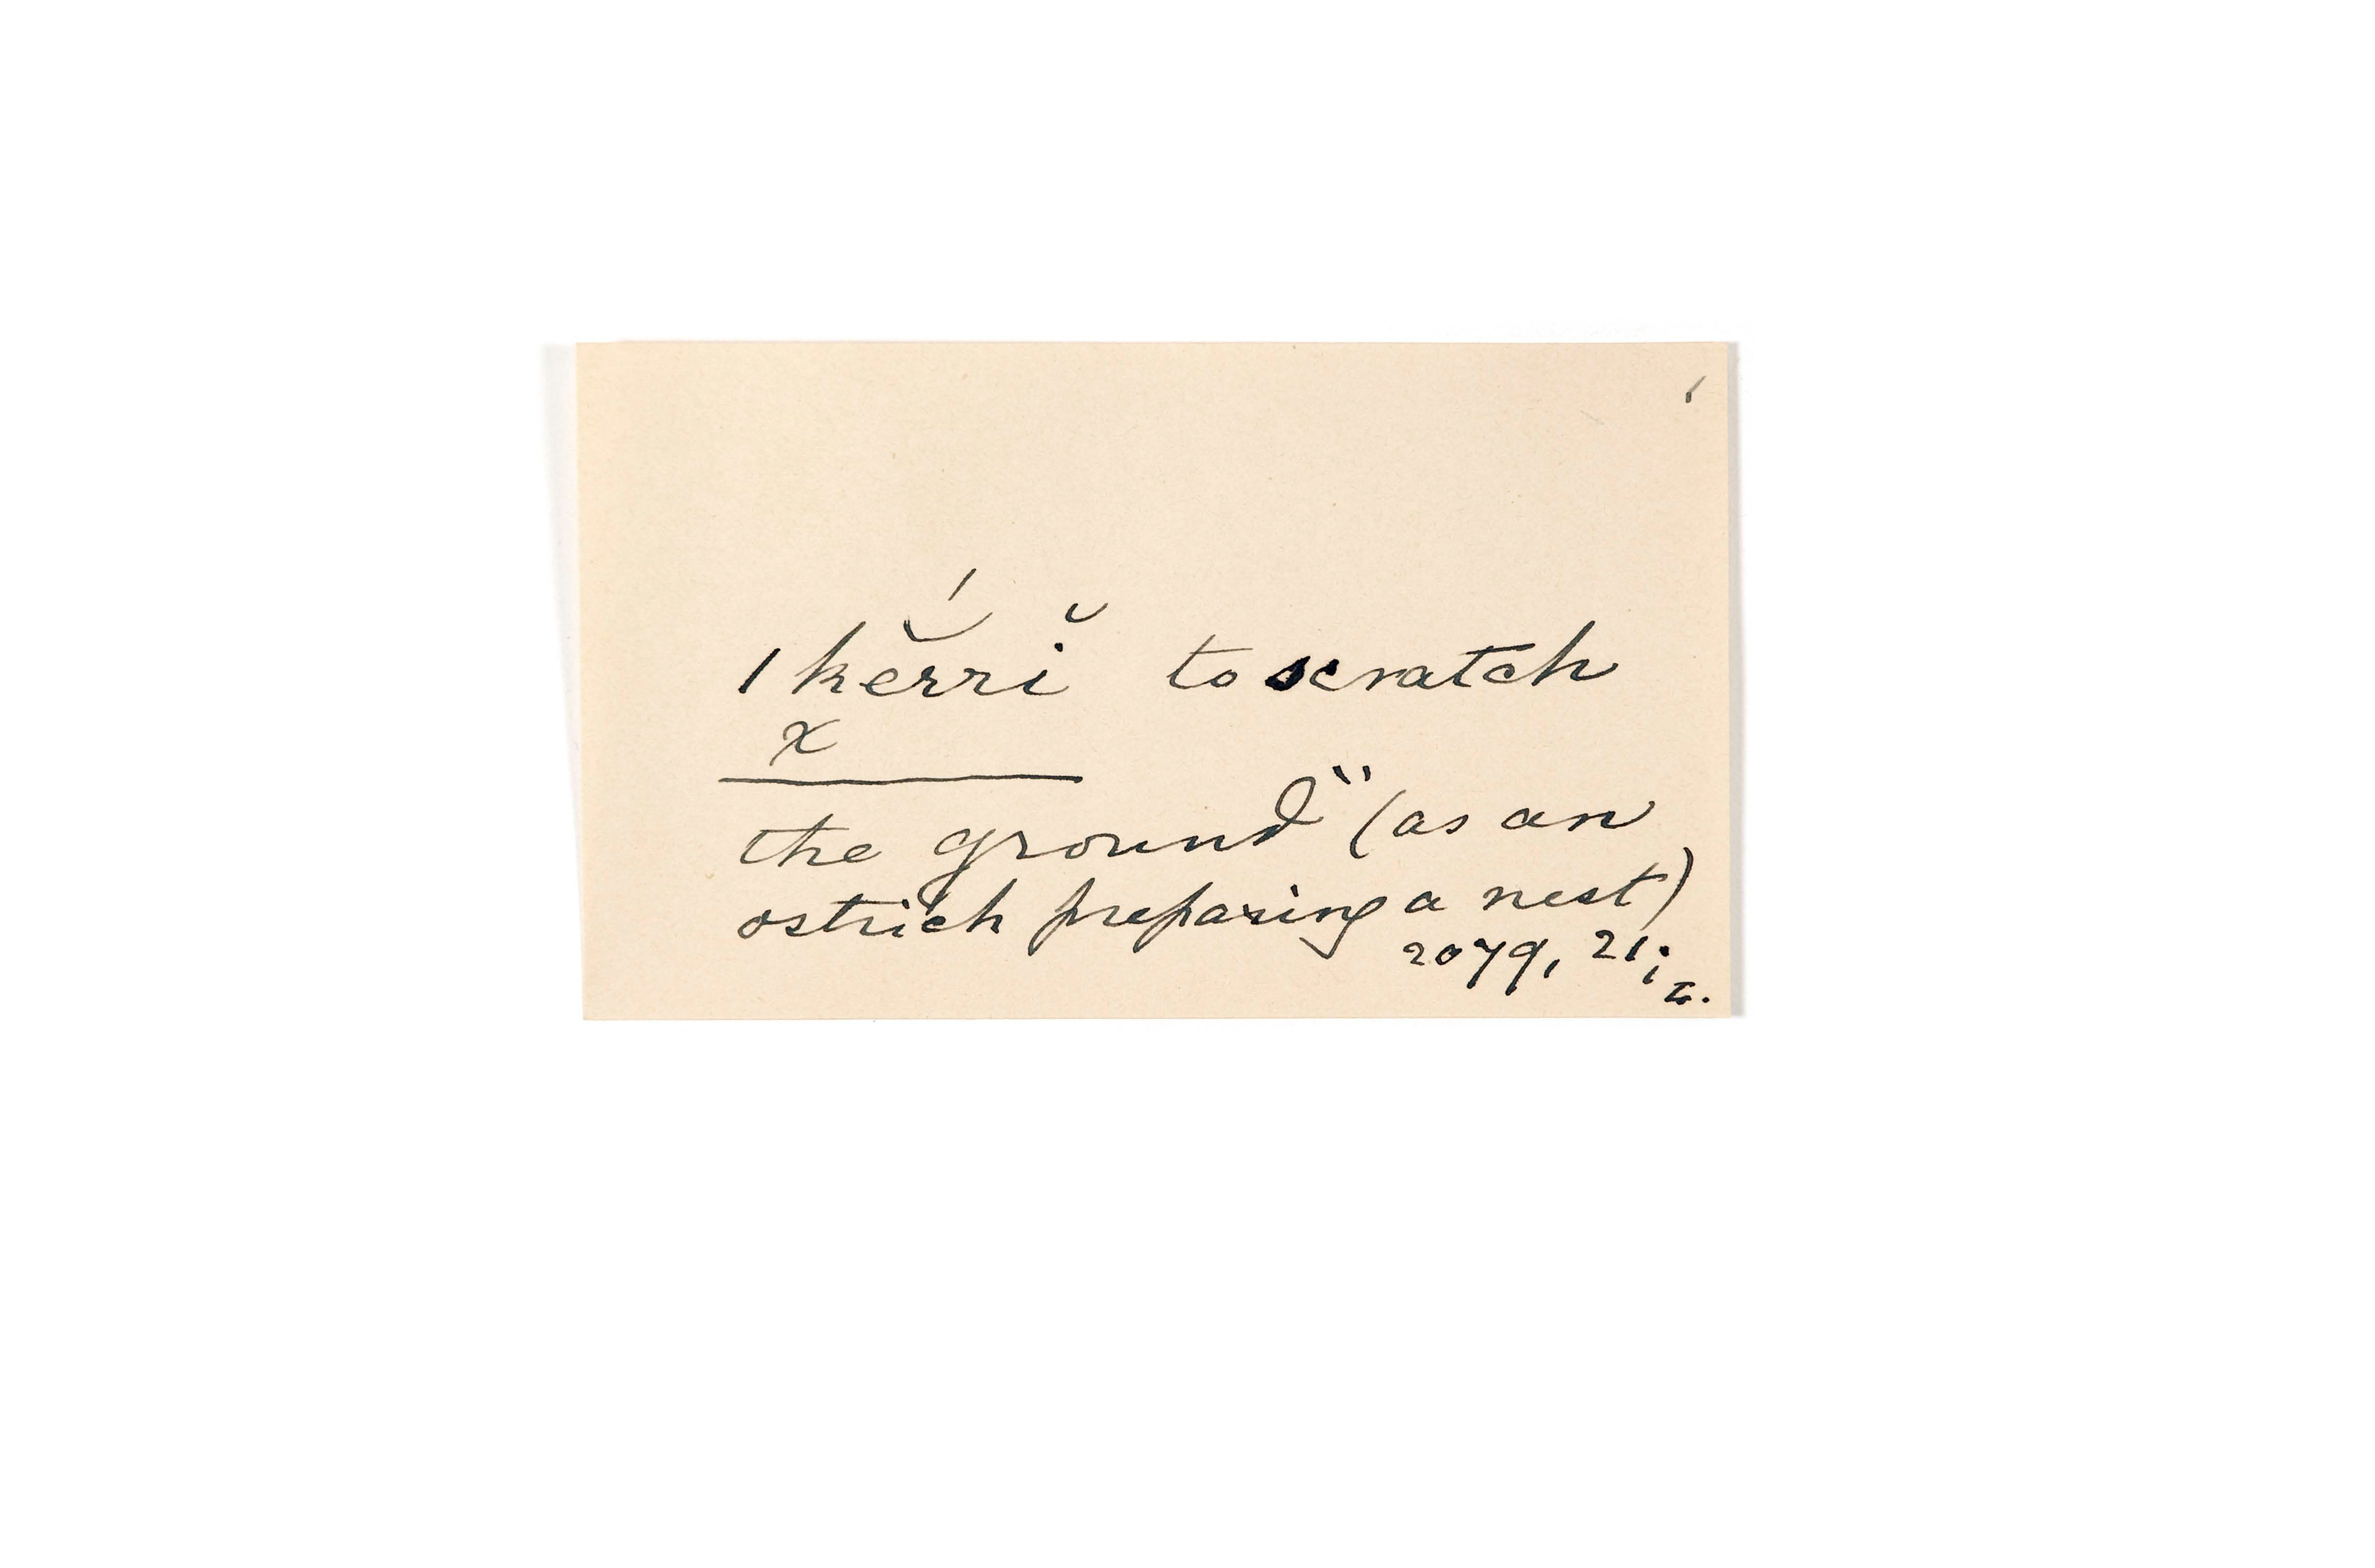 /
ǀkĕ́rrĭ to scratch
χ
the ground" (as an
ostrich preparing a nest)
2079, 21;
L.